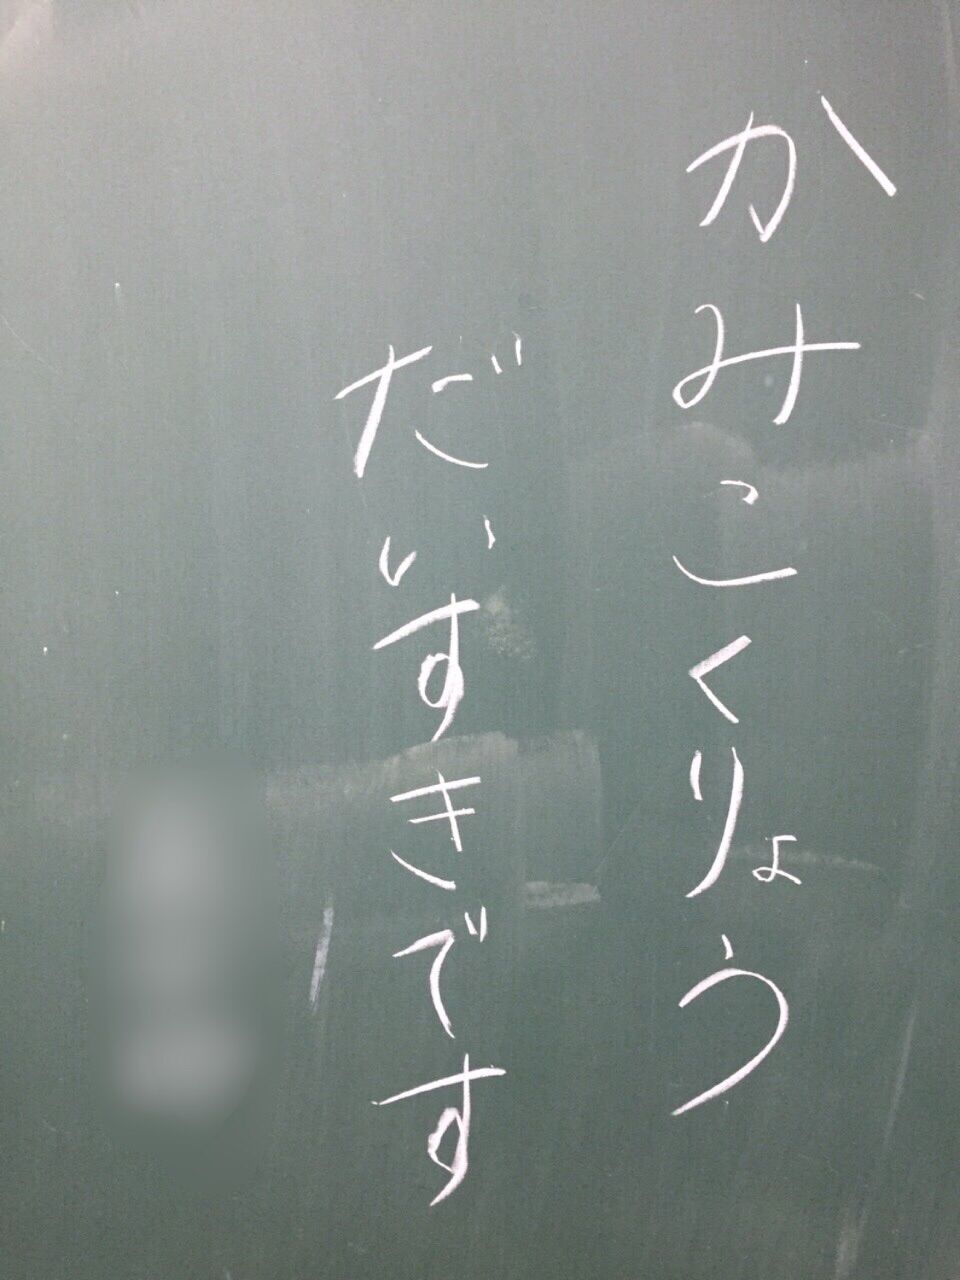 かみこくりょう
だいすきです